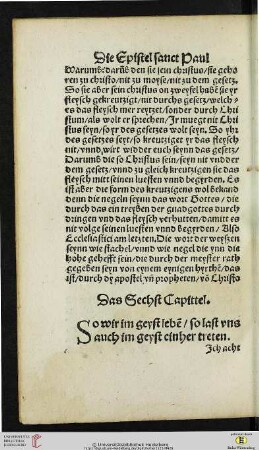 Die Epistel sanct Paul
Warumb/ darūb den sie sein christus/ sie gehö
ren zu christo/ nit zu moyse/ nit zu dem gesetz.
So sie aber sein christus on zweyfel habē sie yr
fleysch gekreutzigt/ nit durchs gesetz/ welch-
es das fleysch mer reytzet/ sonder durch Chri
stum/ als wolt er sprechen/ Jr muegt nit Chri
stus seyn/ so yr des gesetzes wolt seyn. So yhr
des gesetzes seyt/ so kreutziget yr das fleysch
nit/ vnnd wirt widder euch seynn das gesetz/
Darumb die so Christus sein/ seyn nit vnder
dem gesetz/ vnnd zu gleich kreutzigen sie das
fleysch mitt seinen luesten vnnd begyrden. Es
ist aber die form des kreutzigens wol bekand
denn die negeln seynn das wort Gottes/ die
durch das ein treyben der gnad gottes durch
dringen vnd das fleysch verhutten/ damit es
nit volge seinen luesten vnnd begyrden/ Also
Ecclesiastici am letzten. Die wort der weysen
seynn wie stachel/ vnnd wie negel die ynn die
hohe gehefft sein/ die durch der meyster rath
gegeben seyn von eynem eynigen hyrthē/ das
ist/ durch dy apostel vñ propheten/ vō Christo
Das Sechst Capittel.
So wir im geyst lebē/ so last vns
auch im geyst einher treten.
Jch acht
UNIVERSITÄTS-
BIBLIOTHEK
HEIDELBERG
© Universitätsbibliothek Heidelberg
Baden-Württemberg